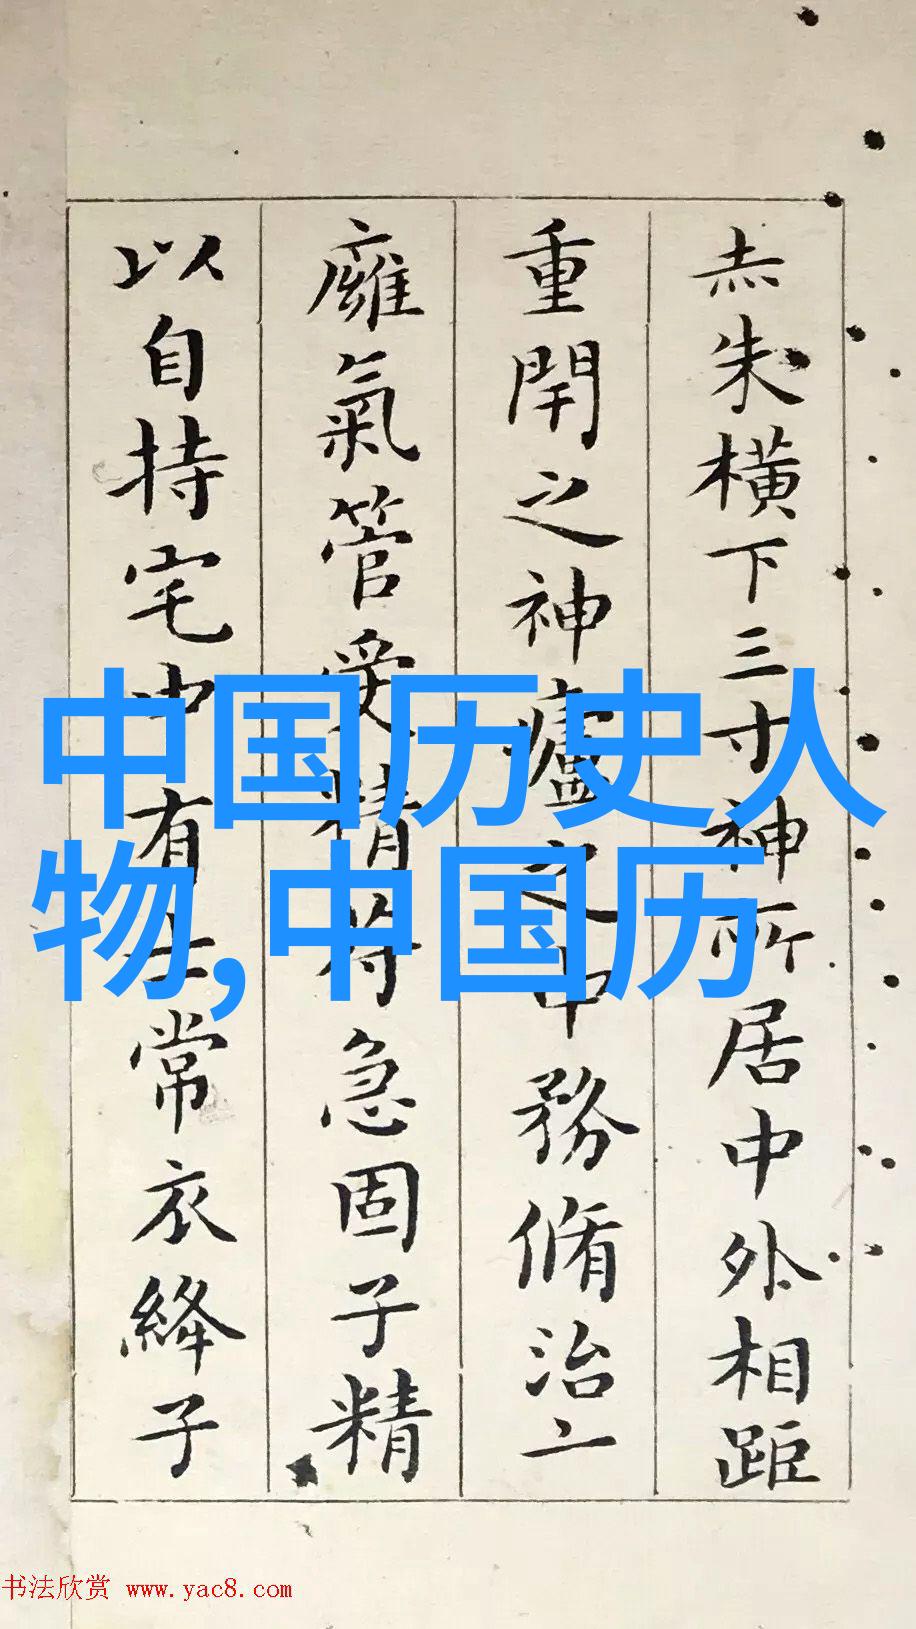 赤朱橫下三寸神所居中外相距
重閈之神廬之中務脩治二
癰氣管受精符急固子精
以自持宅中有士常衣絳子
中国历史人
物,中国历
书法欣赏 www.yac8.com